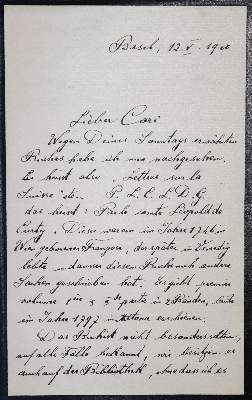 Basel, 12. V. 1920
Lieber Cari
Wegen Deines Sonntags erwähnten
Buches habe ich nun nachgesehen.
Es heisst also „Lettres sur la
Suisse" etc. P. L. C. L. D. G.
das heisst: Par le comte Léopold de
Curty. Diese waren im Jahre 1246 in
Wien geborenen Franzosen, der später in Venedig
lebte – dieses Buch noch andere
Sachen geschrieben hat. Es gibt
volume 1ier & IIde parte in 2 Bänden, beide
im Jahre 1797 in Altona erschienen.
Das Buch ist nicht besonders selten,
auf alle Fälle bekannt, wir besitzen es
auch auf der Bibliothek, dass ich es